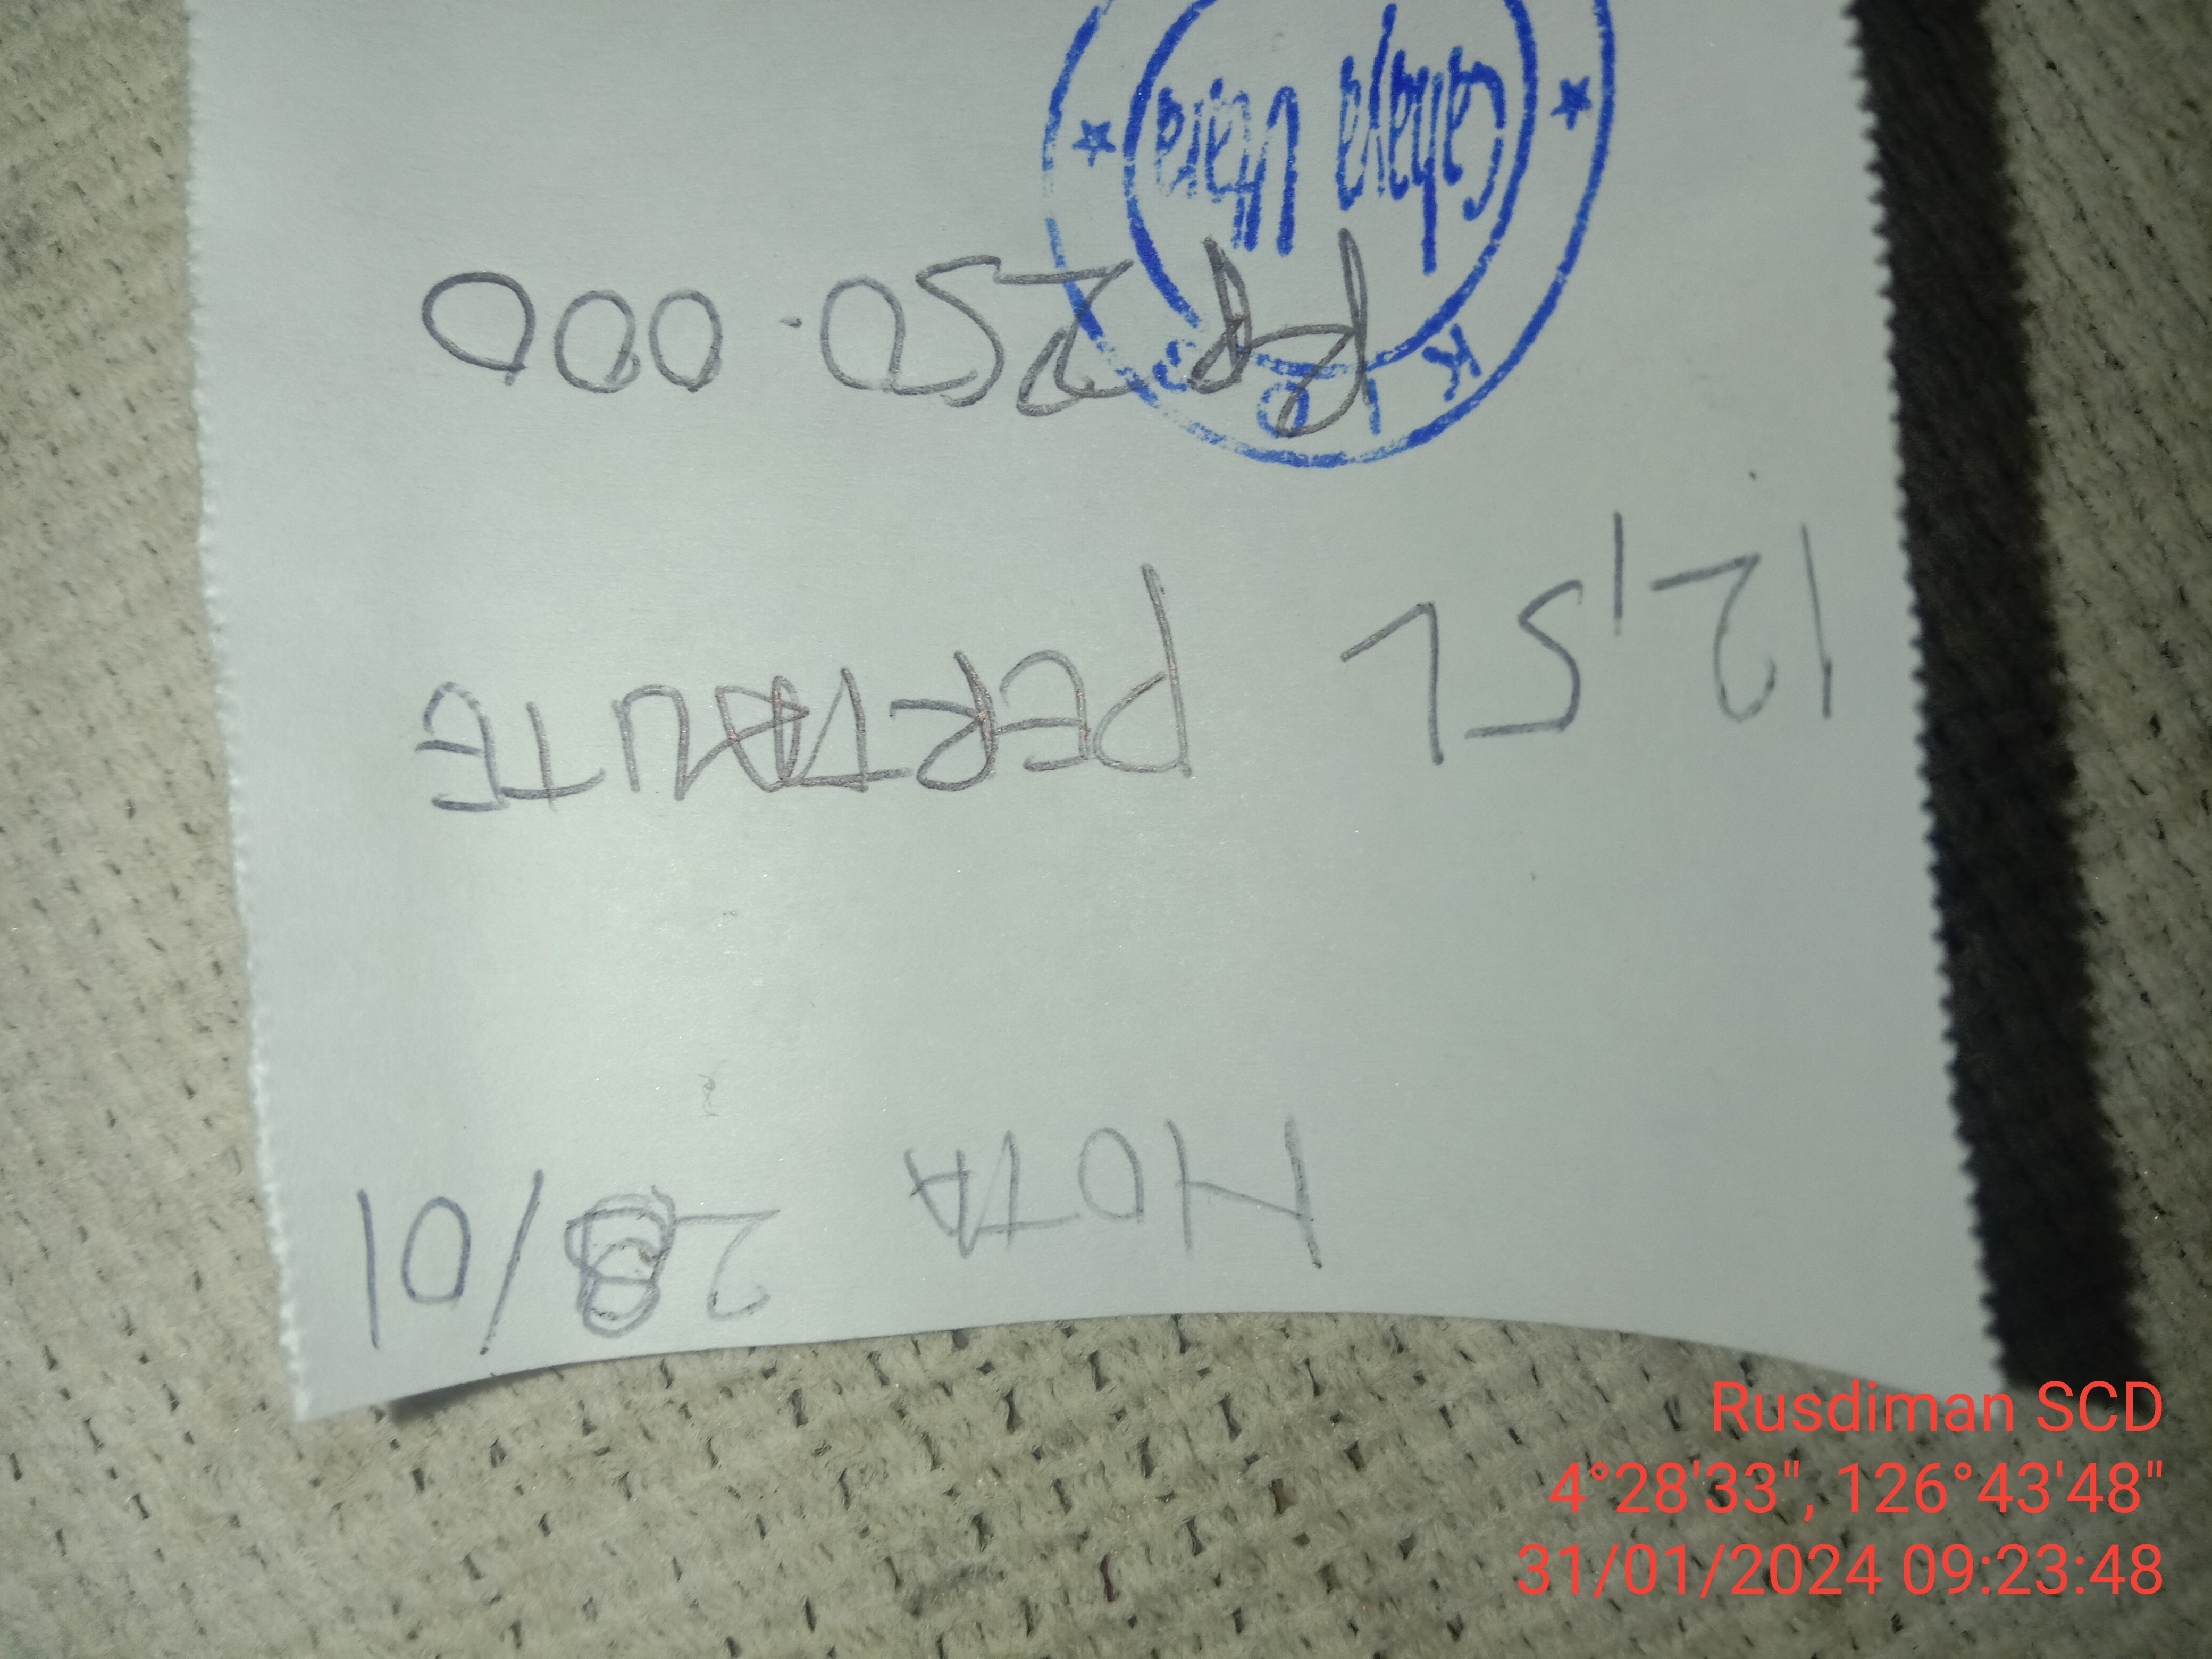 NOTA 28/01
12,5 L PERTALITE
RP 250.000
KIOS
Cahaya Utara
Rusdiman SCD
4°28'33", 126°43'48"
31/01/2024 09:23:48